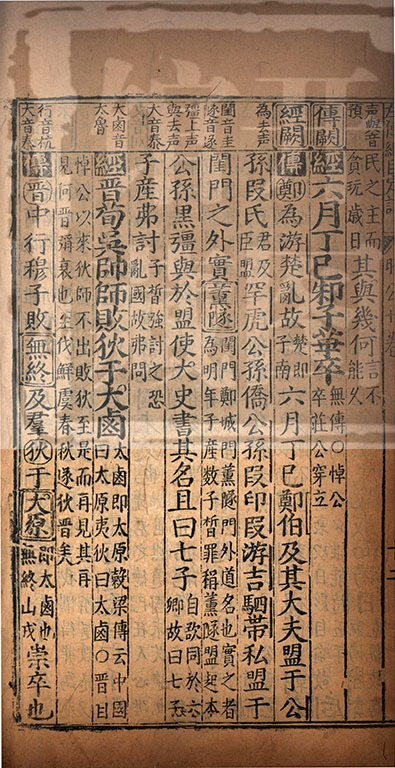 民之主而
貪玩歲日
其與幾何
言不
能久
傳闕
經六月丁巳邾子華卒
無傳○悼公
卒莊公穿立
經闕
傳鄭為游楚亂故
楚即
子南
六月丁巳鄭伯及其大夫盟于公
為去聲
孫段氏
君及
臣盟
罕虎公孫僑公孫段印段游吉駟帶私盟于
閨音圭
隧音遂
閨門之外實薰隧
閨門鄭城門薰隧門外道名也實之者
為明年子產數子晳罪稱薰隧盟起本
彊上聲
與去聲
公孫黑彊與於盟使大史書其名且曰七子
自欲同於六
卿故曰七子
大音泰
子產弗討
子晳強討之恐
亂國故弗問
大鹵音
太魯
經晉荀吳帥師敗狄于大鹵
太鹵即太原穀梁傳云中國
曰太原夷狄曰太鹵○晉自
悼公以來狄師不出敗狄至是而再見其再
見何晉霸衰也至伐鮮虞春秋遂狄晉矣
行音杭
大音泰
傳晉中行穆子敗無終及羣狄于大原
即太鹵也
無終山戎
崇卒也